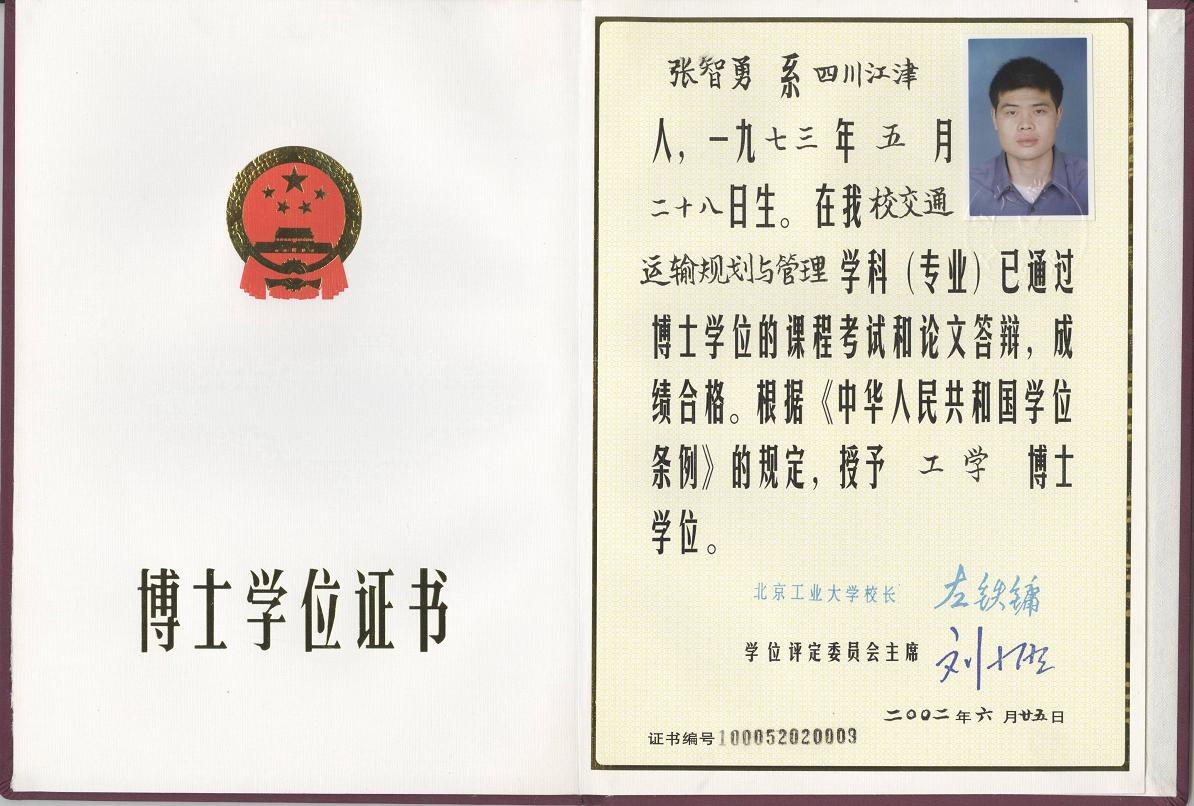 博士学位证书
张智勇 系 四川江津
人，一九七三年 五 月
二十八日生。在我校交通
运输规划与管理学科（专业）已通过
博士学位的课程考试和论文答辩，成
绩合格。根据《中华人民共和国学位
条例》的规定，授予 工学 博士
学位。
北京工业大学校长 左铁镛
学位评定委员会主席
二〇〇二年六月廿五日
证书编号100052020009